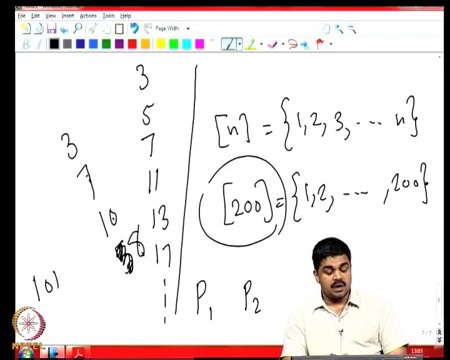 File Edit View Insert Actions Tools Help
Page Width
3
5
3 7
7 11
10 13
8 17
101
[n] = {1, 2, 3, ... n}
[200] = {1, 2, ..., 200}
P1 P2